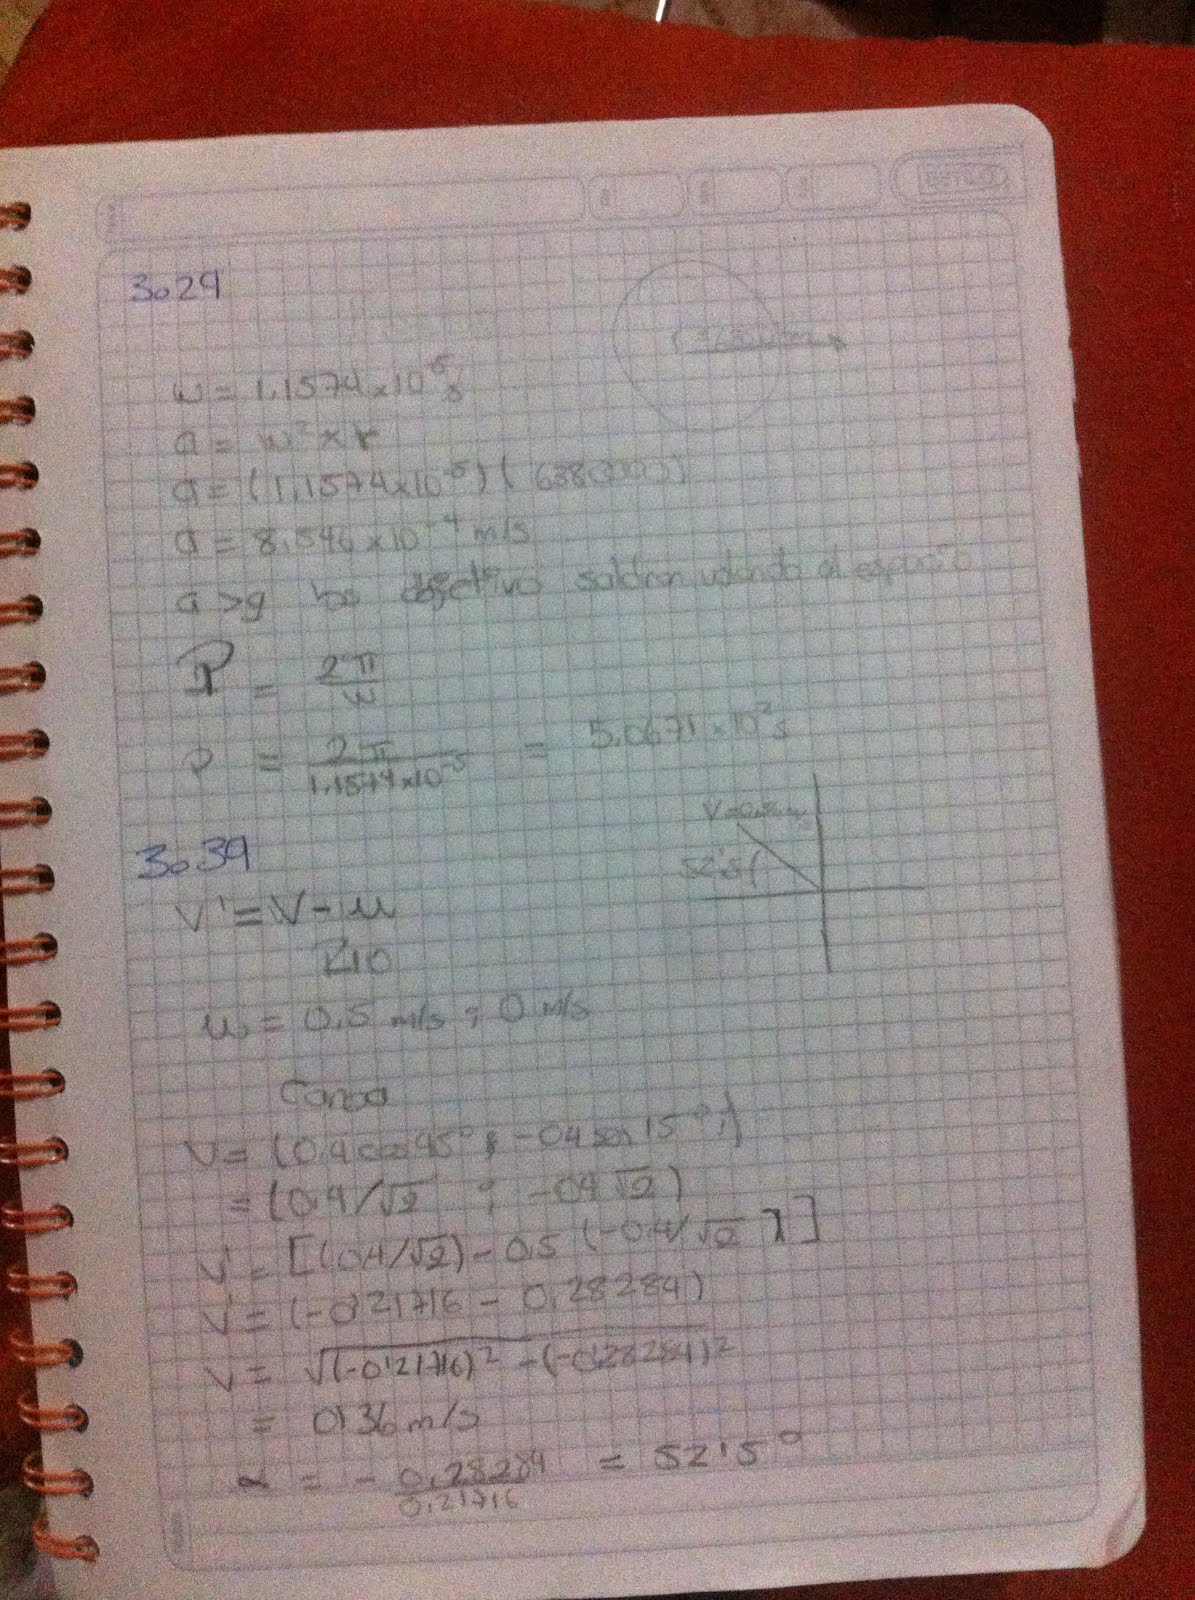 3.29
w = 1.1574x10^-5 s
a = w² x r
a = (1.1574x10^-5) (6380000)
a = 8.546x10^-4 m/s
a > g los objetivo saldran volando al espacio
P = 2π / w
P = 2π / 1.1574x10^-5 = 5.0671x10² s
3.39
V' = V - u
u = 0.5 m/s ; 0 m/s
V=0.3
52'5
Canoa
V = (0.4 cos 45° ; -04 sen 15°)
= (0.4/√2 ; -04 √2)
V' = [(0.4/√2) - 0.5 (-0.4/√2)]
V' = (-0'21716 - 0.28284)
V = √(-0'21716)² - (-0'28284)²
= 0'36 m/s
α = - 0.28284 / 0.21716 = 52'5°